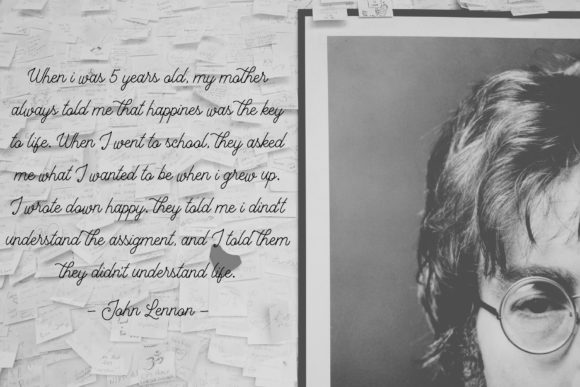 When i was 5 years old, my mother
always told me that happines was the key
to life. When I went to school, they asked
me what I wanted to be when i grew up.
I wrote down happy. they told me i dindt
understand the assigment, and I told them
they didn't understand life.
– John Lennon –